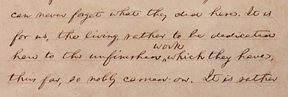 can never forget what they did here. It is
for us, the living, rather to be dedicated
work
here to the unfinished, which they have,
thus far, so nobly carried on. It is rather